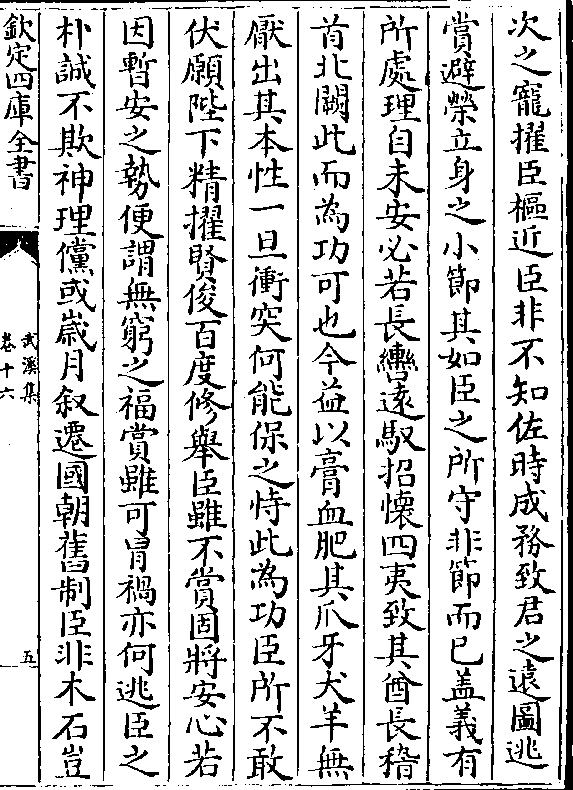 次之寵擢臣樞近臣非不知佐時成務致君之遠圖逃
賞避榮立身之小節其如臣之所守非節而已盖義有
所處理自未安必若長轡遠馭招懷四夷致其酋長稽
首北闕此而為功可也今益以膏血肥其爪牙犬羊無
厭出其本性一旦衝突何能保之恃此為功臣所不敢
伏願陛下精擢賢俊百度修舉臣雖不賞固將安心若
因暫安之勢便謂無窮之福賞雖可冐禍亦何逃臣之
朴誠不欺神理儻或嵗月叙遷國朝舊制臣非木石豈
欽定四庫全書
武溪集
卷十六
五